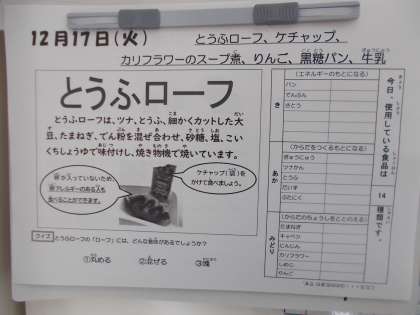 12月17日(火)
とうふローフ、ケチャップ、
カリフラワーのスープ煮、りんご、黒糖パン、牛乳
とうふローフ
とうふローフは、ツナ、とうふ、細かくカットした大
豆、たまねぎ、でん粉を混ぜ合わせ、砂糖、塩、こい
くちしょうゆで味付けし、焼き物機で焼いています。
卵が入っていないため、
卵アレルギーのある人も
食べることができます。
ケチャップ(袋)を
かけて食べましょう。
クイズ
とうふローフの「ローフ」には、どんな意味があるでしょうか?
①丸める
②混ぜる
③塊
今日、使用している食品は
14
種類です。
き
(エネルギーのもとになる)
パン
でんぷん
さとう
あか
(からだをつくるもとになる)
ぎゅうにゅう
ツナかん
とうふ
だいず
ぶたにく
みどり
(からだのちょうしをととのえる)
たまねぎ
キャベツ
にんじん
カリフラワー
しめじ
りんご